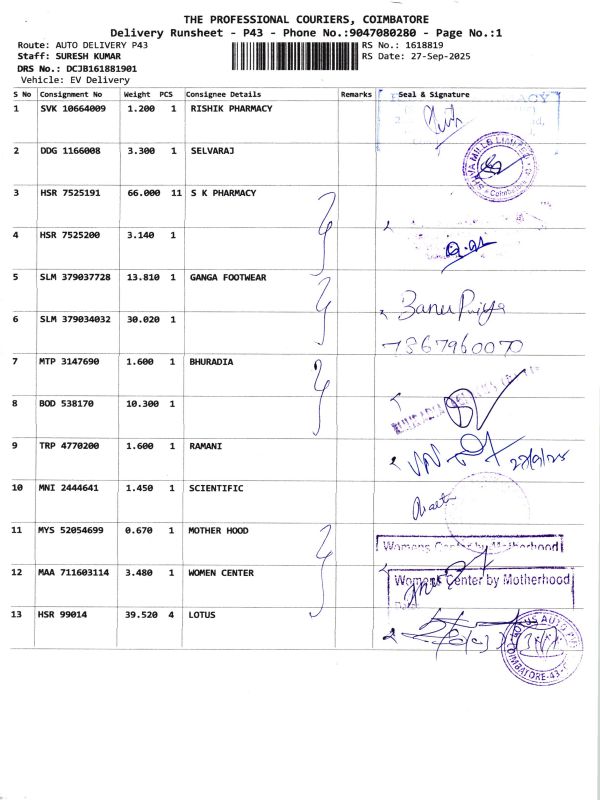 THE PROFESSIONAL COURIERS, COIMBATORE
Delivery Runsheet - P43 - Phone No.:9047080280 - Page No.:1
Route: AUTO DELIVERY P43 RS No.: 1618819
Staff: SURESH KUMAR RS Date: 27-Sep-2025
DRS No.: DCJB161881901
Vehicle: EV Delivery
S No Consignment No Weight PCS Consignee Details Remarks Seal & Signature
1 SVK 10664009 1.200 1 RISHIK PHARMACY
2 DDG 1166008 3.300 1 SELVARAJ
SHIVA MILLS LIMITED
Coimbatore
3 HSR 7525191 66.000 11 S K PHARMACY
4 HSR 7525200 3.140 1
5 SLM 379037728 13.810 1 GANGA FOOTWEAR
Banu Priya
6 SLM 379034032 30.020 1
7367960070
7 MTP 3147690 1.600 1 BHURADIA
8 BOD 538170 10.300 1
9 TRP 4770200 1.600 1 RAMANI
27/9/25
10 MNI 2444641 1.450 1 SCIENTIFIC
11 MYS 52054699 0.670 1 MOTHER HOOD
Womens Center by Motherhood
12 MAA 711603114 3.480 1 WOMEN CENTER
Womens Center by Motherhood
13 HSR 99014 39.520 4 LOTUS
COIMBATORE-43